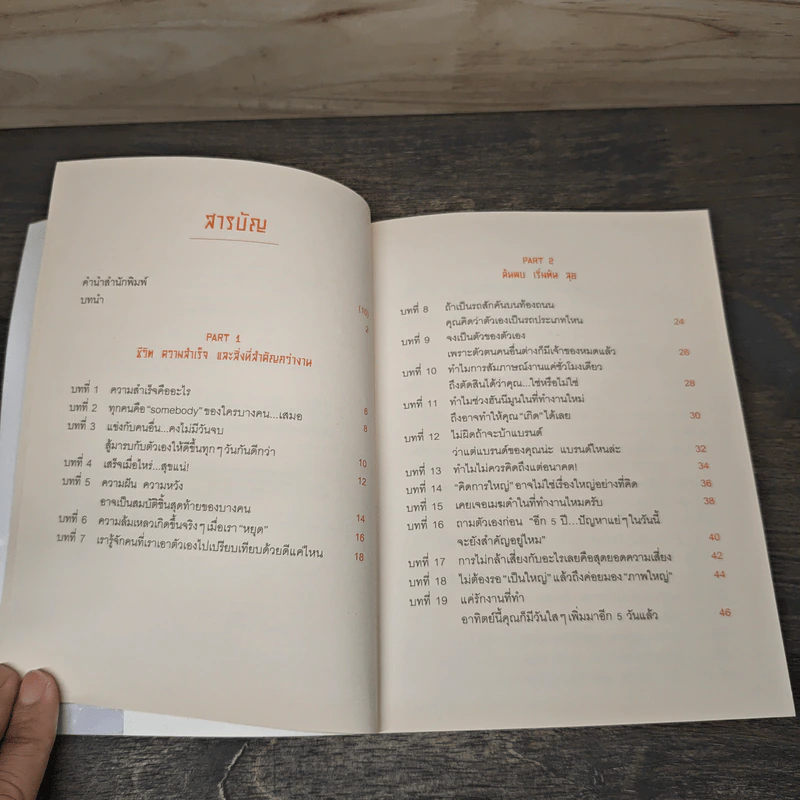 สารบัญ
คำนำสำนักพิมพ์
บทนำ (10)
PART 1
ชีวิต ความสำเร็จ และสิ่งที่สำคัญกว่างาน
บทที่ 1 ความสำเร็จคืออะไร
บทที่ 2 ทุกคนคือ "somebody" ของใครบางคน...เสมอ 6
บทที่ 3 แข่งกับคนอื่น...คงไม่มีวันจบ 8
สู้มารบกับตัวเองให้ดีขึ้นทุกๆ วันกันดีกว่า
บทที่ 4 เสร็จเมื่อไหร่...สุขแน่! 10
บทที่ 5 ความฝัน ความหวัง 12
อาจเป็นสมบัติชิ้นสุดท้ายของบางคน
บทที่ 6 ความล้มเหลวเกิดขึ้นจริงๆ เมื่อเรา "หยุด" 14
บทที่ 7 เรารู้จักคนที่เราเอาตัวเองไปเปรียบเทียบด้วยดีแค่ไหน 16
18
PART 2
ค้นพบ เริ่มต้น ลุย
บทที่ 8 ถ้าเป็นรถสักคันบนท้องถนน
คุณคิดว่าตัวเองเป็นรถประเภทไหน 24
บทที่ 9 จงเป็นตัวของตัวเอง
เพราะตัวตนคนอื่นต่างก็มีเจ้าของหมดแล้ว 26
บทที่ 10 ทำไมการสัมภาษณ์งานแค่ชั่วโมงเดียว
ถึงตัดสินได้ว่าคุณ...ใช่หรือไม่ใช่ 28
บทที่ 11 ทำไมช่วงฮันนีมูนในที่ทำงานใหม่
ถึงอาจทำให้คุณ "เกิด" ได้เลย 30
บทที่ 12 ไม่ผิดถ้าจะบ้าแบรนด์
ว่าแต่แบรนด์ของคุณน่ะ แบรนด์ไหนล่ะ 32
บทที่ 13 ทำไมไม่ควรคิดถึงแต่อนาคต! 34
บทที่ 14 "คิดการใหญ่" อาจไม่ใช่เรื่องใหญ่อย่างที่คิด 36
บทที่ 15 เคยเจอเมฆดำในที่ทำงานไหมครับ 38
บทที่ 16 ถามตัวเองก่อน "อีก 5 ปี...ปัญหาแย่ๆ ในวันนี้
จะยังสำคัญอยู่ไหม" 40
บทที่ 17 การไม่กล้าเสี่ยงกับอะไรเลยคือสุดยอดความเสี่ยง 42
บทที่ 18 ไม่ต้องรอ "เป็นใหญ่" แล้วถึงค่อยมอง "ภาพใหญ่" 44
บทที่ 19 แค่รักงานที่ทำ
อาทิตย์นี้คุณก็มีวันใสๆ เพิ่มมาอีก 5 วันแล้ว 46